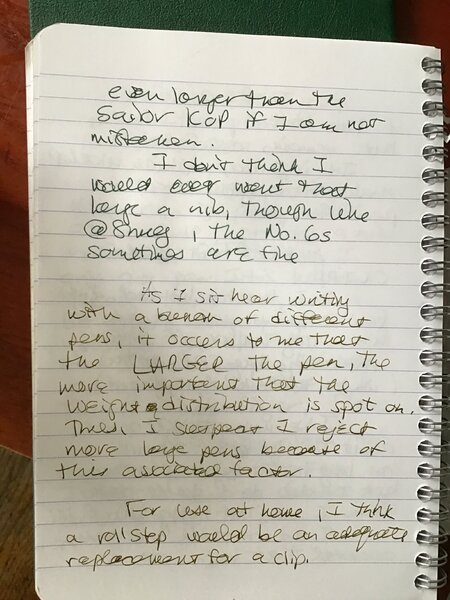 even larger than the
Sailor KOP if I am not
mistaken.
I don't think I
would ever want that
large a nib, though like
, the No. 6s
sometimes are fine
As I sit hear writing
with a bunch of different
pens, it occurs to me that
the LARGER the pen, the
more important that the
weight distribution is spot on.
Thus, I suspect I reject
more large pens because of
this associated factor.
For use at home, I think
a roll stop would be an adequate
replacement for a clip.